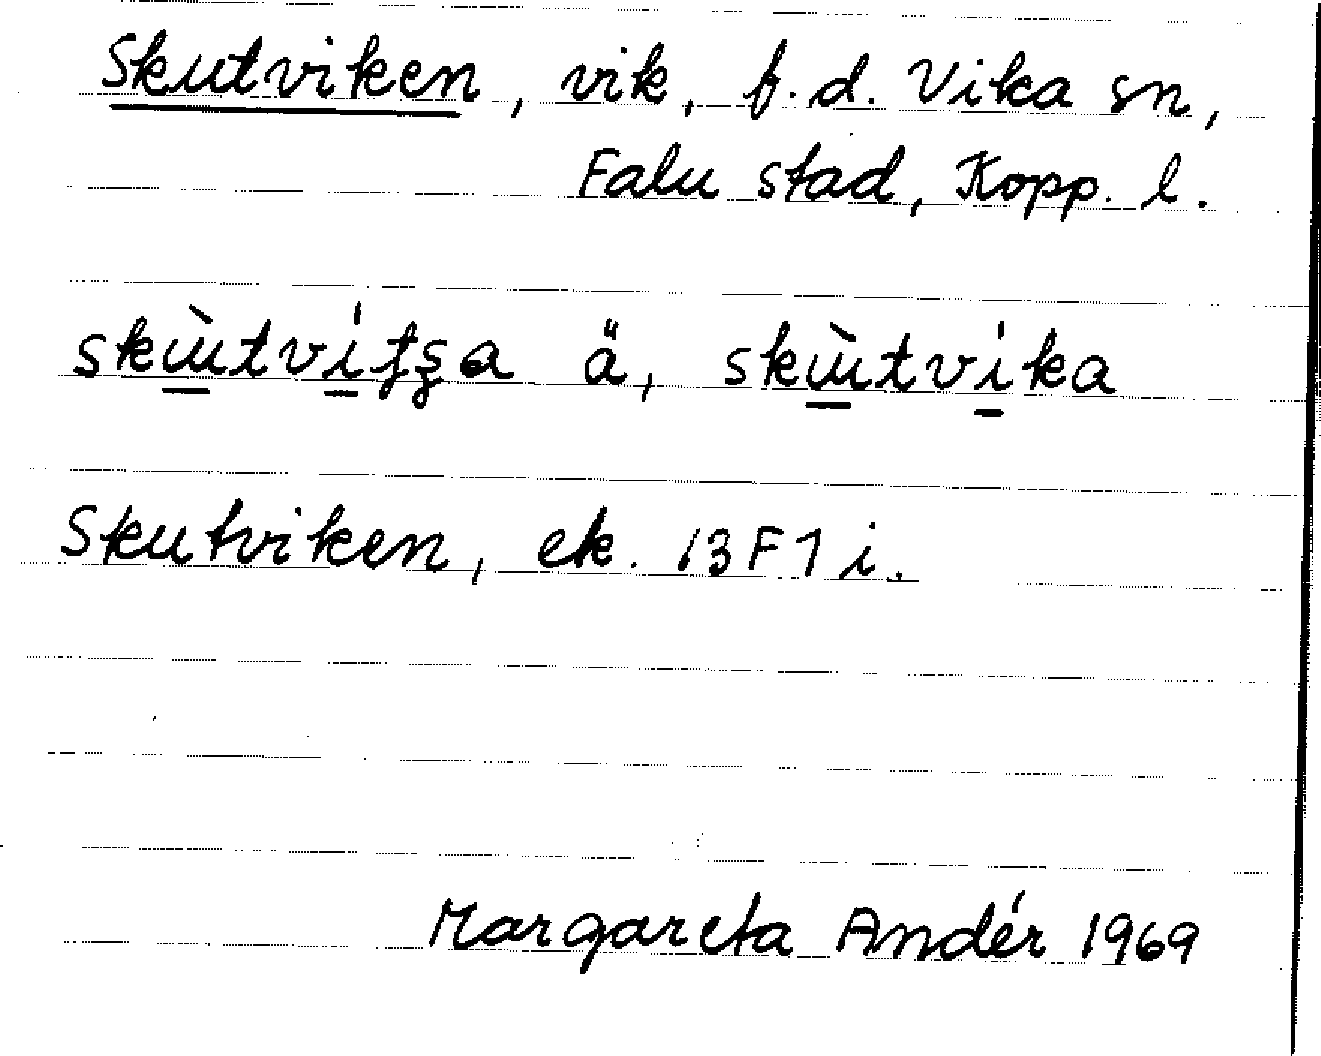 Skutviken, vik, f.d. Vika sn,
Falu stad, Kopp. l.
ä, skɯ̲̀tví̲ka
Skutviken, ek. 13F1i.
Margareta Andér 1969